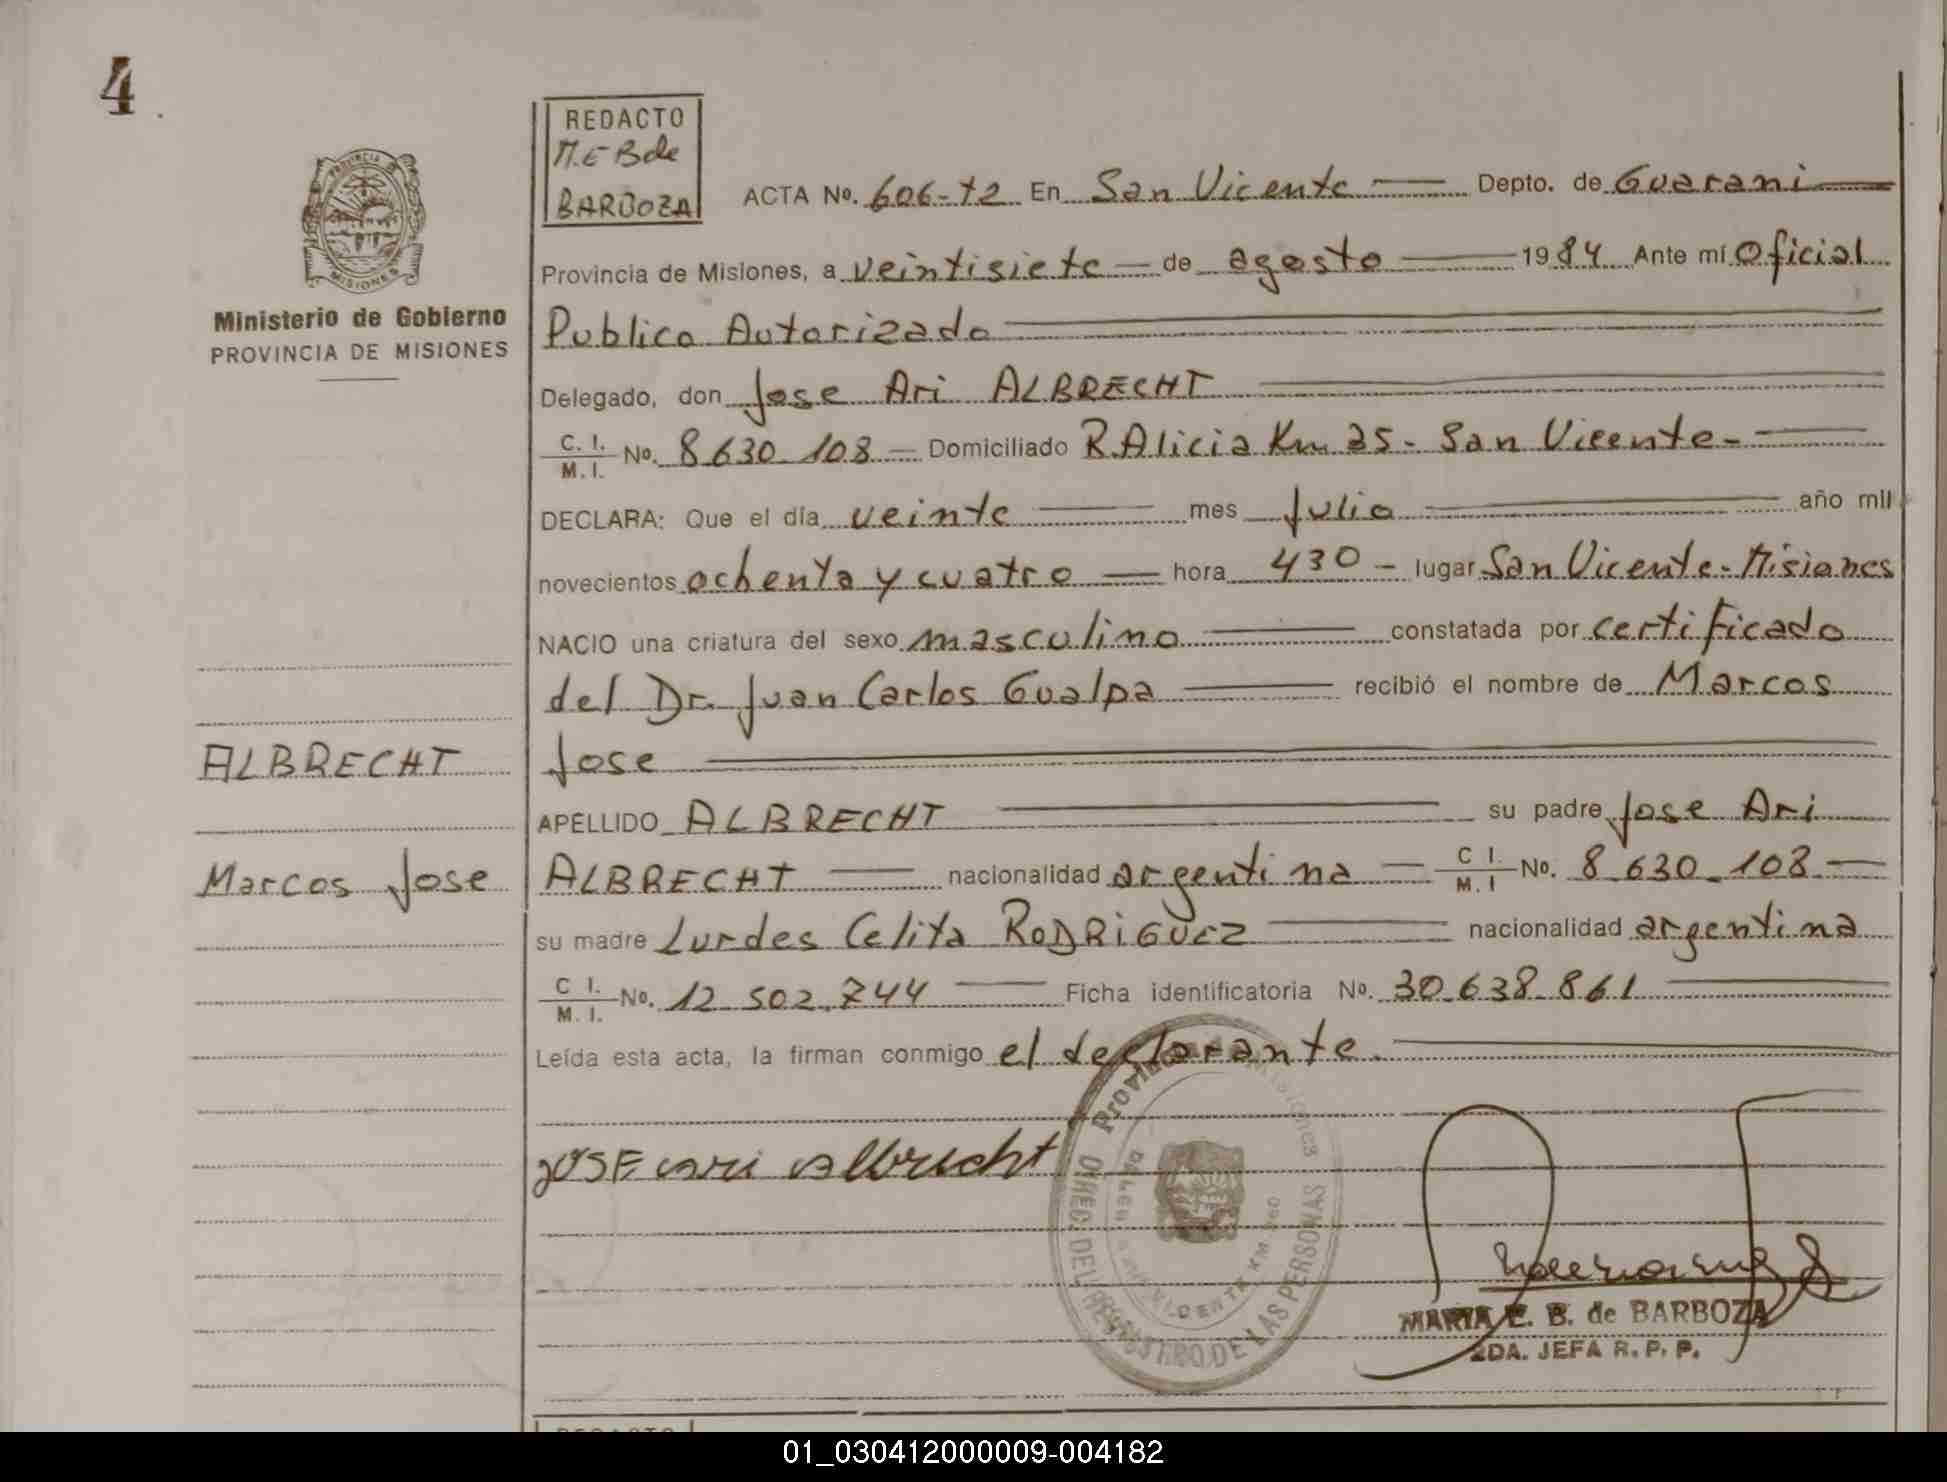 4
PROVINCIA DE
MISIONES
Ministerio de Gobierno
PROVINCIA DE MISIONES
REDACTO
M.E Bde
BARBOZA
ACTA No. 606-T2 En San Vicente Depto. de Guarani
Provincia de Misiones, a veintisiete de agosto 1984 Ante mí Oficial
Publico Autorizado
Delegado, don Jose Ari ALBRECHT
C. I.
M. I. No. 8.630.108 Domiciliado R.Alicia Km 35- San Vicente-
DECLARA: Que el día veinte mes Julio año mil
novecientos ochenta y cuatro hora 430 - lugar San Vicente-Misiones
NACIO una criatura del sexo masculino constatada por certificado
del Dr. Juan Carlos Gualpa recibió el nombre de Marcos
ALBRECHT
Jose
APELLIDO ALBRECHT su padre Jose Ari
Marcos Jose
ALBRECHT nacionalidad argentina C I.
M. I No. 8.630.108
su madre Lurdes Celita RODRIGUEZ nacionalidad argentina
C I.
M. I. No. 12.502.744 Ficha identificatoria No. 30.638.861
Leída esta acta, la firman conmigo el declarante.
JOSE ari albrecht
Provincia de Misiones
DIREC. DEL REGISTRO DE LAS PERSONAS
MARIA E. B. de BARBOZA
2DA. JEFA R. P. P.
REDACTO
01_030412000009-004182